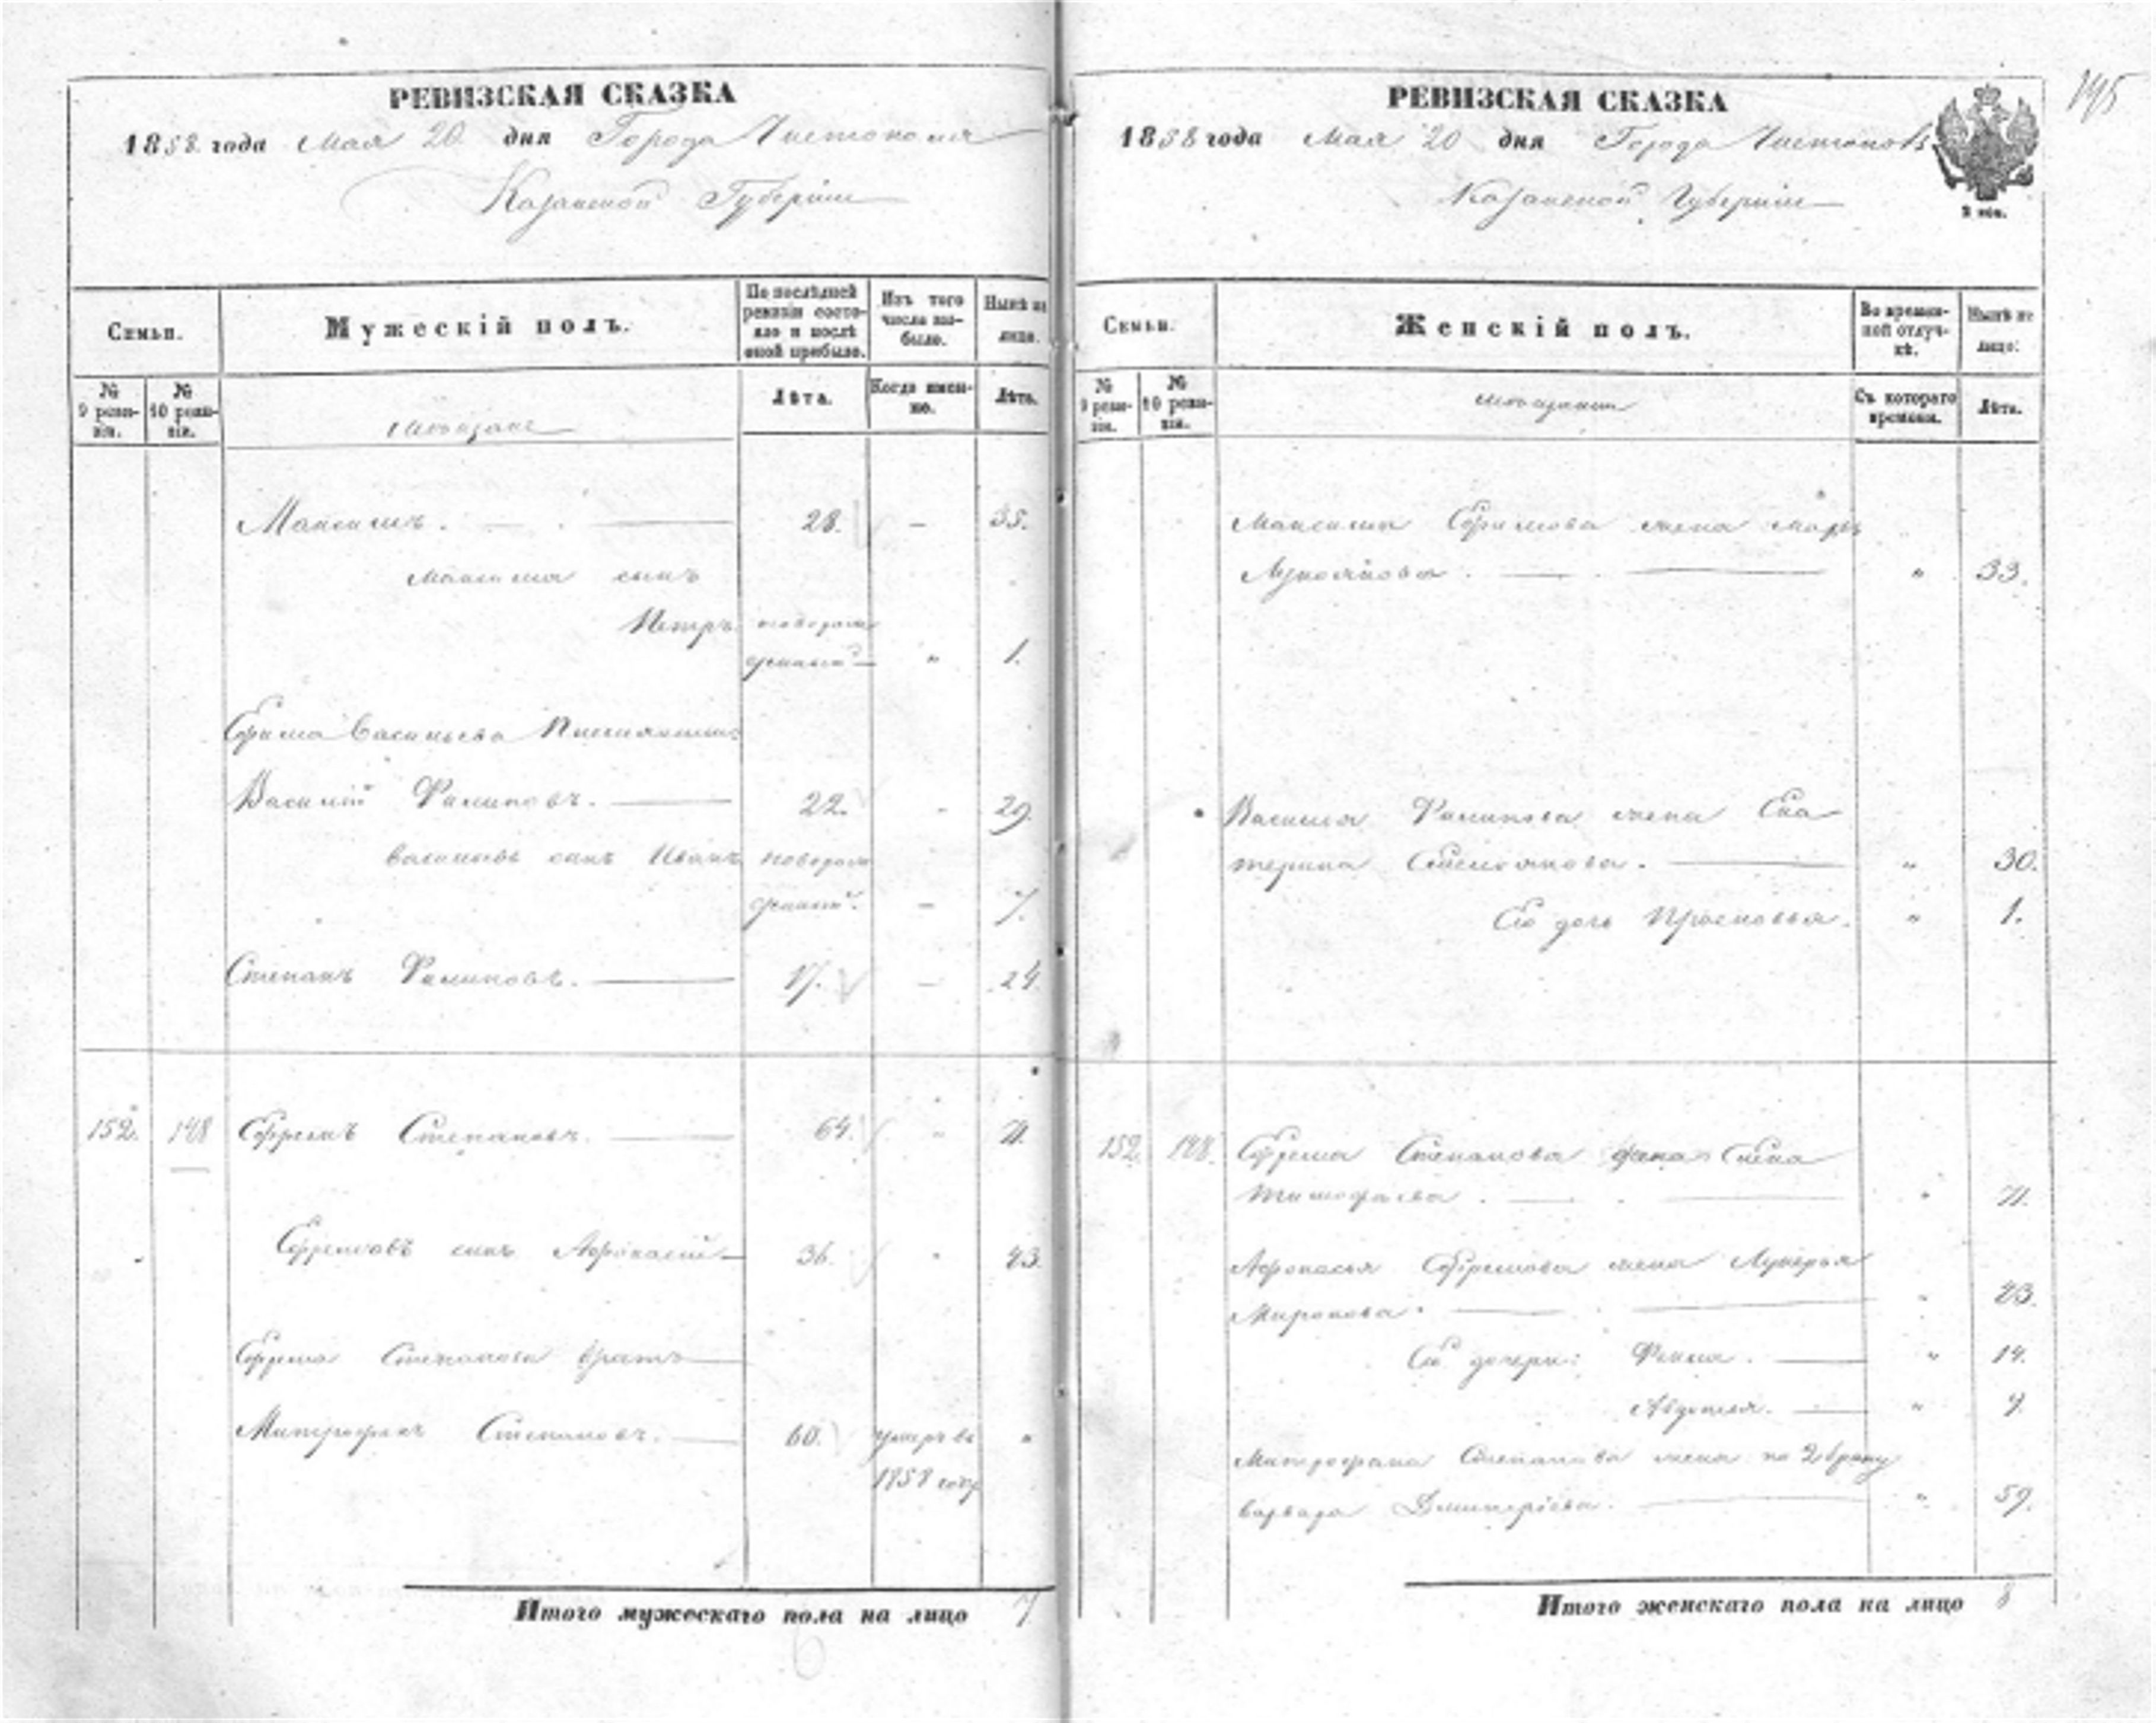 195
РЕВИЗСКАЯ СКАЗКА
1858 года Мая 20 дня Города Чистополя
Казанской Губерніи
Семьи.
Мужескій полъ.
По послѣдней ревизіи состояло и послѣ оной прибыло.
Изъ того числа выбыло.
Нынѣ на лицо.
№ 9 ревизіи.
№ 10 ревизіи.
мѣщане
Лѣта.
Когда именно.
Лѣта.
Максимъ. 28. — 35.
Максима сынъ
Петръ новорож
денный — " 1.
Ефима Васильева
Василій Филиповъ. 22. - 29.
Васильевъ сынъ Иванъ новорож
денный. — 7.
Степанъ Филиповъ. 17. — 24.
152. 148 Ефремъ Степановъ. 64. " 71.
Ефремовъ сынъ Афонасій 36. " 43.
Ефрема Степанова братъ
Митрофанъ Степановъ. 60. умеръ въ "
1858 году
Итого мужескаго пола на лицо 7
6
РЕВИЗСКАЯ СКАЗКА
1858 года Мая 20 дня Города Чистополя
Казанской Губерніи
2 коп.
Семьи.
Женскій полъ.
Во временной отлучкѣ.
Нынѣ на лицо:
№ 9 ревизіи.
№ 10 ревизіи.
мѣщанки
Съ котораго времени.
Лѣта.
Максима Ефимова жена Марья
Лукоянова. " 33.
Василья Филипова жена Ека
терина " 30.
Ево дочь Просковья. " 1.
152. 148. Ефрема Степанова жена
Тимофѣева. " 71.
Афонасья Ефремова жена Лукерья
Миронова. " 43.
Ево дочери: Фекла. " 14.
Авдотья. " 9.
Митрофана Степанова жена по 2 браку
Варвара Дмитріева. " 59.
Итого женскаго пола на лицо 8